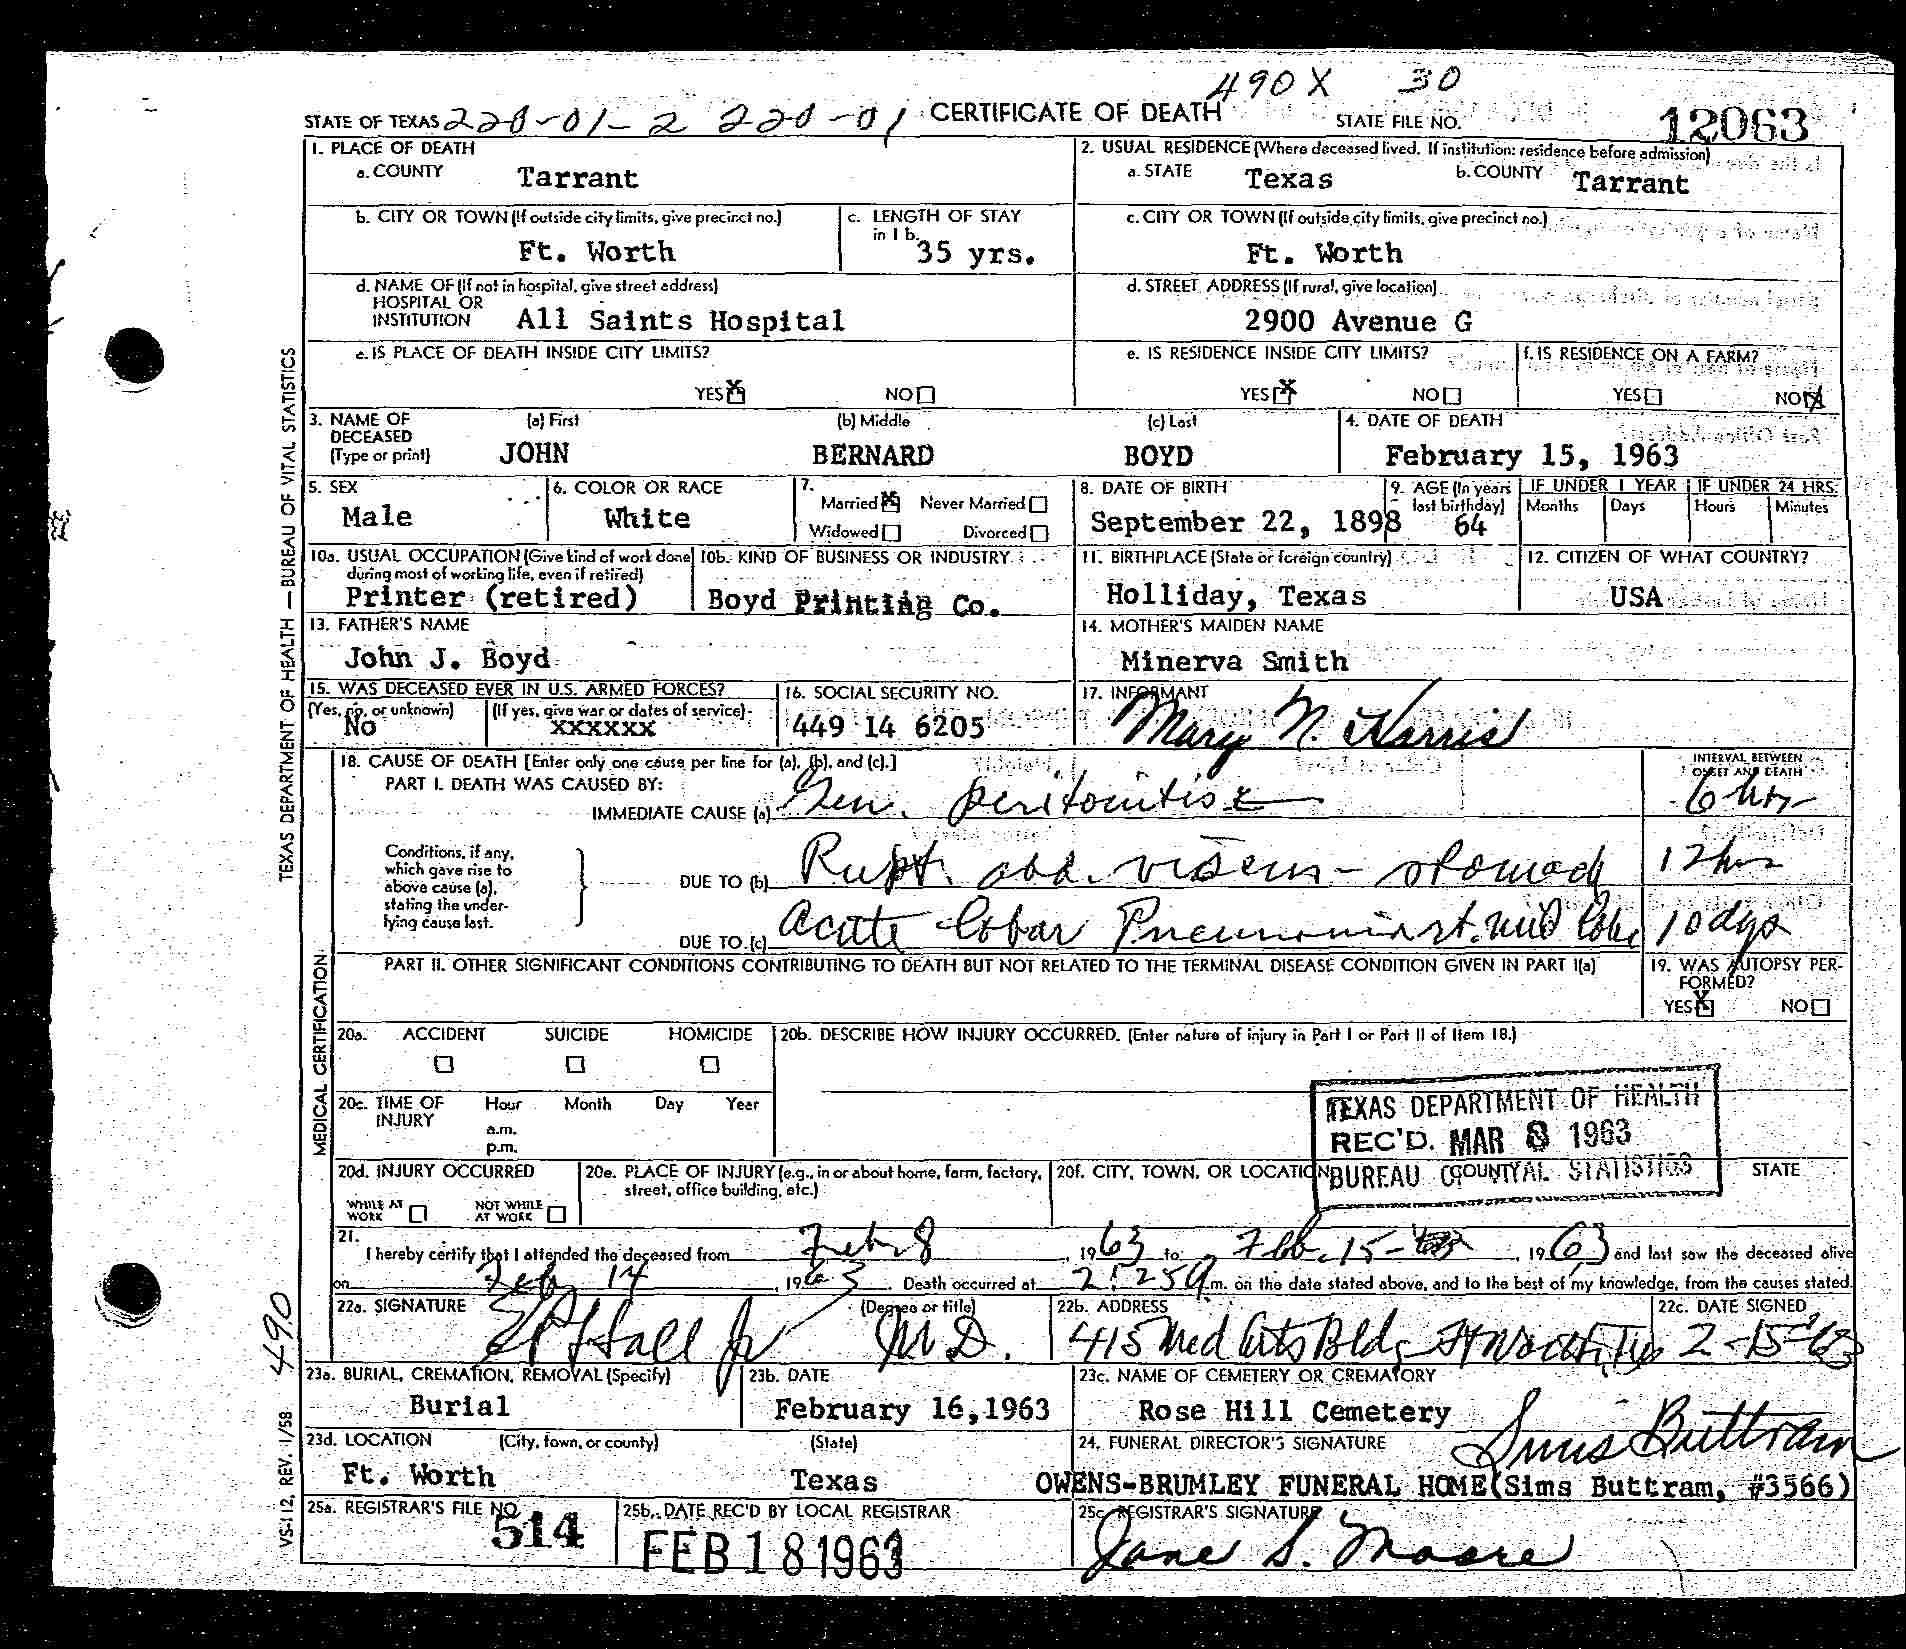 490X 30
STATE OF TEXAS 220-01-2 220-01 CERTIFICATE OF DEATH STATE FILE NO. 12063
1. PLACE OF DEATH
a. COUNTY Tarrant
2. USUAL RESIDENCE (Where deceased lived. If institution: residence before admission)
a. STATE Texas b. COUNTY Tarrant
b. CITY OR TOWN (If outside city limits, give precinct no.)
Ft. Worth
c. LENGTH OF STAY
in 1 b.
35 yrs.
c. CITY OR TOWN (If outside city limits, give precinct no.)
Ft. Worth
d. NAME OF (If not in hospital, give street address)
HOSPITAL OR
INSTITUTION All Saints Hospital
d. STREET ADDRESS (If rural, give location)
2900 Avenue G
e. IS PLACE OF DEATH INSIDE CITY LIMITS?
YES X NO
e. IS RESIDENCE INSIDE CITY LIMITS?
YES X NO
f. IS RESIDENCE ON A FARM?
YES NO X
3. NAME OF
DECEASED
(Type or print)
(a) First (b) Middle (c) Last
JOHN BERNARD BOYD
4. DATE OF DEATH
February 15, 1963
5. SEX
Male
6. COLOR OR RACE
White
7.
Married X Never Married
Widowed Divorced
8. DATE OF BIRTH
September 22, 1898
9. AGE (In years
last birthday)
64
IF UNDER 1 YEAR
Months Days
IF UNDER 24 HRS.
Hours Minutes
10a. USUAL OCCUPATION (Give kind of work done
during most of working life, even if retired)
Printer (retired)
10b. KIND OF BUSINESS OR INDUSTRY
Boyd Printing Co.
11. BIRTHPLACE (State or foreign country)
Holliday, Texas
12. CITIZEN OF WHAT COUNTRY?
USA
13. FATHER'S NAME
John J. Boyd
14. MOTHER'S MAIDEN NAME
Minerva Smith
15. WAS DECEASED EVER IN U.S. ARMED FORCES?
(Yes, no, or unknown) (If yes, give war or dates of service)
No XXXXXX
16. SOCIAL SECURITY NO.
449 14 6205
17. INFORMANT
Mary N. Harris
18. CAUSE OF DEATH [Enter only one cause per line for (a), (b), and (c).]
PART I. DEATH WAS CAUSED BY:
IMMEDIATE CAUSE (a) Gen. peritonitis
INTERVAL BETWEEN
ONSET AND DEATH
6 hrs
Conditions, if any,
which gave rise to
above cause (a),
stating the under-
lying cause last.
DUE TO (b) Rupt. abd. viscus - stomach 12 hrs
DUE TO (c) Acute Lobar Pneumonia rt. mid lobe 10 dys
PART II. OTHER SIGNIFICANT CONDITIONS CONTRIBUTING TO DEATH BUT NOT RELATED TO THE TERMINAL DISEASE CONDITION GIVEN IN PART I(a)
19. WAS AUTOPSY PER-
FORMED?
YES X NO
20a. ACCIDENT SUICIDE HOMICIDE
20b. DESCRIBE HOW INJURY OCCURRED. (Enter nature of injury in Part I or Part II of Item 18.)
20c. TIME OF
INJURY
Hour Month Day Year
a.m.
p.m.
TEXAS DEPARTMENT OF HEALTH
REC'D. MAR 8 1963
BUREAU OF VITAL STATISTICS
20d. INJURY OCCURRED
WHILE AT
WORK
NOT WHILE
AT WORK
20e. PLACE OF INJURY (e.g., in or about home, farm, factory,
street, office building, etc.)
20f. CITY, TOWN, OR LOCATION COUNTY STATE
21.
I hereby certify that I attended the deceased from Feb 8, 1963 to Feb. 15-, 1963 and last saw the deceased alive
on Feb 14, 1963. Death occurred at 2:25 A m. on the date stated above, and to the best of my knowledge, from the causes stated.
22a. SIGNATURE (Degree or title)
Hall Jr M.D.
22b. ADDRESS
415 Med Arts Bldg Ft Worth, Tex
22c. DATE SIGNED
2-15-63
23a. BURIAL, CREMATION, REMOVAL (Specify)
Burial
23b. DATE
February 16,1963
23c. NAME OF CEMETERY OR CREMATORY
Rose Hill Cemetery
23d. LOCATION (City, town, or county) (State)
Ft. Worth Texas
24. FUNERAL DIRECTOR'S SIGNATURE
Sims Buttram
OWENS-BRUMLEY FUNERAL HOME(Sims Buttram, #3566)
25a. REGISTRAR'S FILE NO.
514
25b. DATE REC'D BY LOCAL REGISTRAR
FEB 18 1963
25c. REGISTRAR'S SIGNATURE
Jane S. Moore
TEXAS DEPARTMENT OF HEALTH — BUREAU OF VITAL STATISTICS
MEDICAL CERTIFICATION
490
VS-112, REV. 1/58